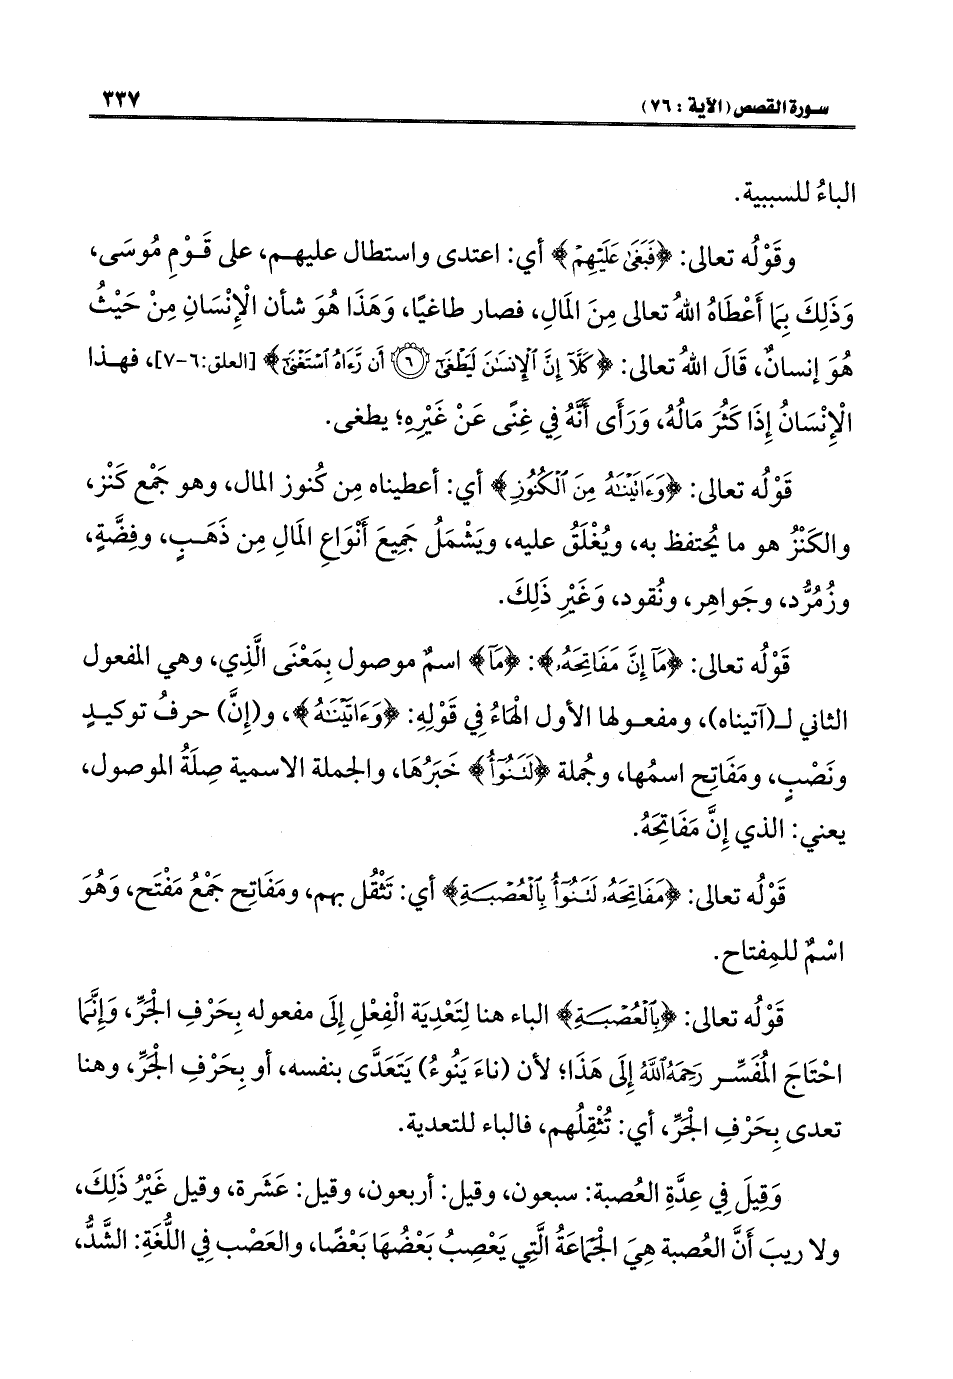 سورة القصص (الآية : ٧٦) ٣٣٧
الباءُ للسببية.
وقَوْلُه تعالى: ﴿فَبَغَىٰ عَلَيْهِمْ﴾ أي: اعتدى واستطال عليهم، على قَوْمِ مُوسَى،
وَذَلِكَ بِمَا أَعْطَاهُ اللهُ تعالى مِنَ المَالِ، فصار طاغيًا، وَهَذَا هُوَ شأن الْإِنْسَانِ مِنْ حَيْثُ
هُوَ إنسانٌ، قَالَ اللهُ تعالى: ﴿كَلَّآ إِنَّ ٱلْإِنسَٰنَ لَيَطْغَىٰٓ ۝٦ أَن رَّءَاهُ ٱسْتَغْنَىٰٓ﴾ [العلق:٦-٧]، فهذا
الْإِنْسَانُ إِذَا كَثُرَ مَالُهُ، وَرَأَى أَنَّهُ فِي غِنًى عَنْ غَيْرِهِ؛ يطغى.
قَوْلُه تعالى: ﴿وَءَاتَيْنَٰهُ مِنَ ٱلْكُنُوزِ﴾ أي: أعطيناه مِن كُنوز المال، وهو جَمْع كَنْز،
والكَنْزُ هو ما يُحتفظ به، ويُغْلَقُ عليه، ويَشْمَلُ جَمِيعَ أَنْوَاعِ المَالِ مِن ذَهَبٍ، وفِضَّةٍ،
وزُمُرُّد، وجَواهِر، ونُقود، وَغَيْرِ ذَلِكَ.
قَوْلُه تعالى: ﴿مَآ إِنَّ مَفَاتِحَهُۥ﴾: ﴿مَآ﴾ اسمٌ موصول بِمَعْنَى الَّذِي، وهي المفعول
الثاني لـ(آتيناه)، ومفعولها الأول الهَاءُ فِي قَوْلِهِ: ﴿وَءَاتَيْنَٰهُ﴾، و(إِنَّ) حرفُ توكيدٍ
ونَصْبٍ، ومَفَاتِح اسمُها، وجُملة ﴿لَتَنُوٓأُ﴾ خَبَرُهَا، والجملة الاسمية صِلَةُ الموصول،
يعني: الذي إِنَّ مَفَاتِحَهُ.
قَوْلُه تعالى: ﴿مَفَاتِحَهُۥ لَتَنُوٓأُ بِٱلْعُصْبَةِ﴾ أي: تَثْقُل بهم، ومَفَاتِح جَمْعُ مَفْتَح، وَهُوَ
اسْمٌ للمِفتاح.
قَوْلُه تعالى: ﴿بِٱلْعُصْبَةِ﴾ الباء هنا لِتَعْدِيَة الْفِعْلِ إِلَى مفعوله بِحَرْفِ الجَرِّ، وَإِنَّمَا
احْتَاجَ المُفَسِّر رَحِمَهُ اللَّهُ إِلَى هَذَا؛ لأن (ناءَ يَنُوءُ) يَتَعَدَّى بنفسه، أو بِحَرْفِ الجَرِّ، وهنا
تعدى بِحَرْفِ الجَرِّ، أي: تُثْقِلُهم، فالباء للتعدية.
وَقِيلَ فِي عِدَّةِ العُصبة: سبعون، وقيل: أربعون، وقيل: عَشَرة، وقيل غَيْرُ ذَلِكَ،
ولا ريبَ أَنَّ العُصبة هِيَ الجَمَاعَةُ الَّتِي يَعْصِبُ بَعْضُهَا بَعْضًا، والعَصْب فِي اللُّغَةِ: الشَّدُّ،